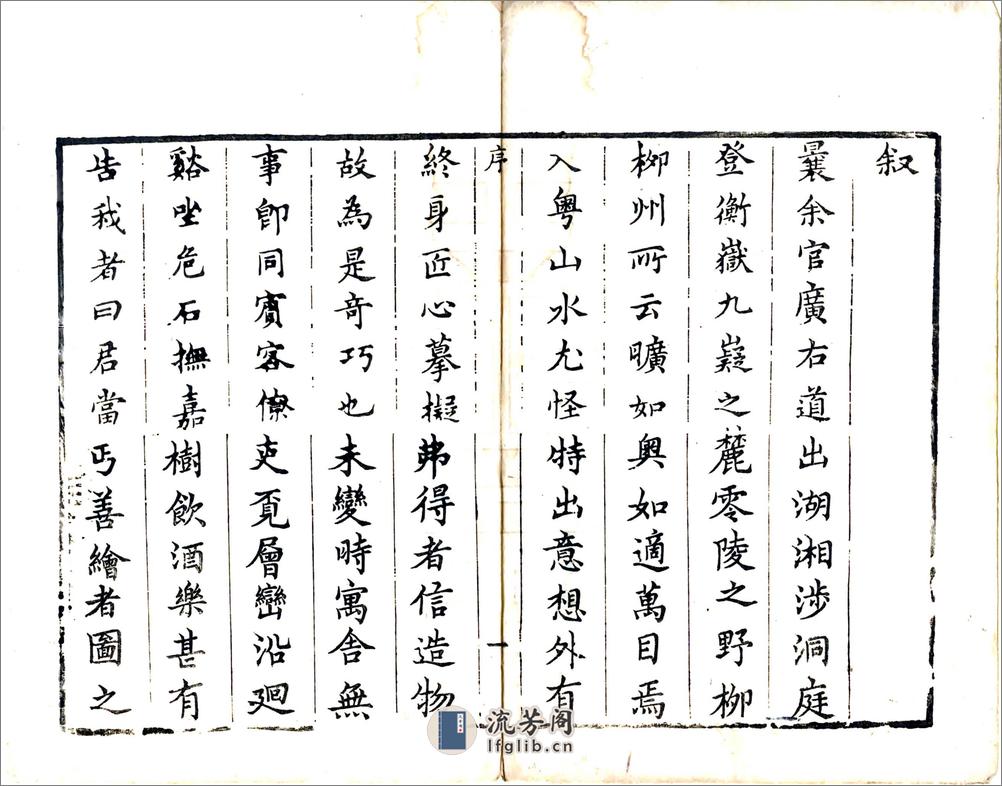 叙
曩余官廣右道出湖湘涉洞庭
登衡嶽九嶷之麓零陵之野柳
柳州所云曠如奧如適萬目焉
入粵山水尤怪特出意想外有
序
一
終身匠心摹擬弗得者信造物
故為是奇巧也未變時寓舍無
事即同賓客僚吏覔層巒沿廻
谿坐危石撫嘉樹飲酒樂甚有
告我者曰君當丐善繪者圖之
流芳阁
lfglib.cn